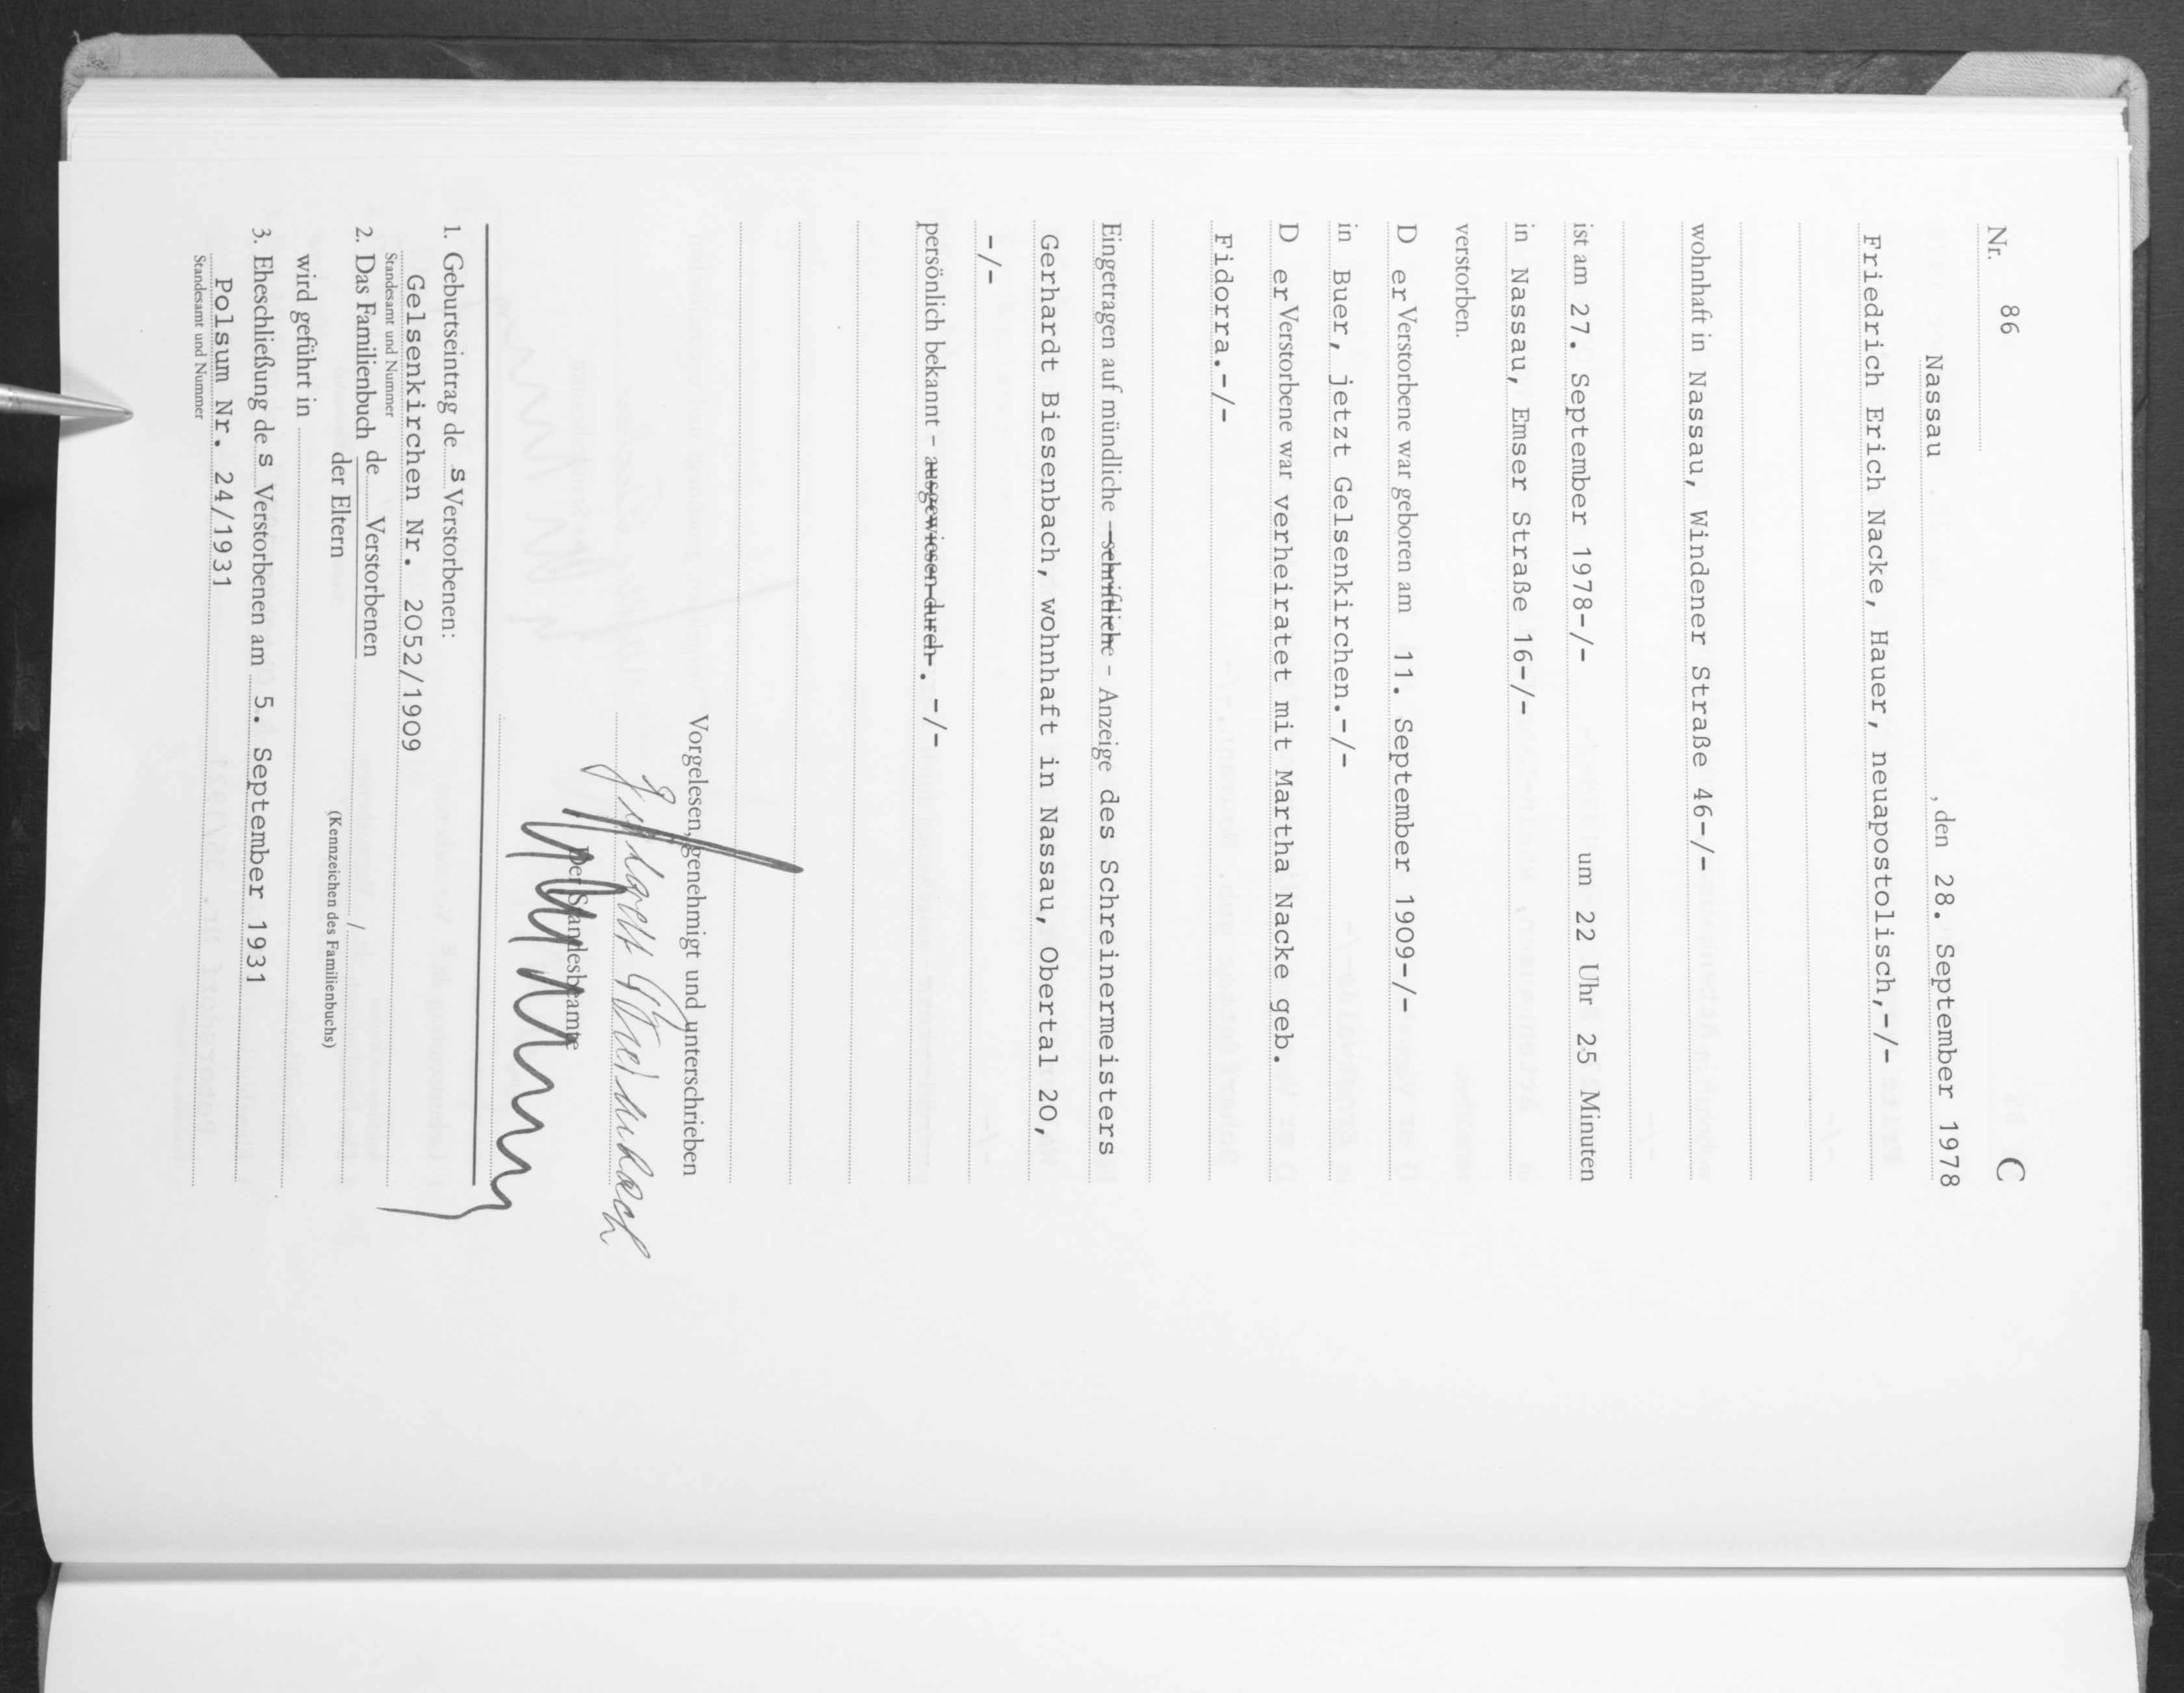 Nr. 86 C
Nassau, den 28. September 1978
Friedrich Erich Nacke, Hauer, neuapostolisch,-/-
wohnhaft in Nassau, Windener Straße 46-/-
ist am 27. September 1978-/- um 22 Uhr 25 Minuten
in Nassau, Emser Straße 16-/-
verstorben.
D er Verstorbene war geboren am 11. September 1909-/-
in Buer, jetzt Gelsenkirchen.-/-
D er Verstorbene war verheiratet mit Martha Nacke geb.
Fidorra.-/-
Eingetragen auf mündliche - schriftliche - Anzeige des Schreinermeisters
Gerhardt Biesenbach, wohnhaft in Nassau, Obertal 20,
-/-
persönlich bekannt - ausgewiesen durch -. -/-
Vorgelesen, genehmigt und unterschrieben
Der Standesbeamte
1. Geburtseintrag de s Verstorbenen:
Gelsenkirchen Nr. 2052/1909
Standesamt und Nummer
2. Das Familienbuch de Verstorbenen /
der Eltern (Kennzeichen des Familienbuchs)
wird geführt in
3. Eheschließung de s Verstorbenen am 5. September 1931
Polsum Nr. 24/1931
Standesamt und Nummer